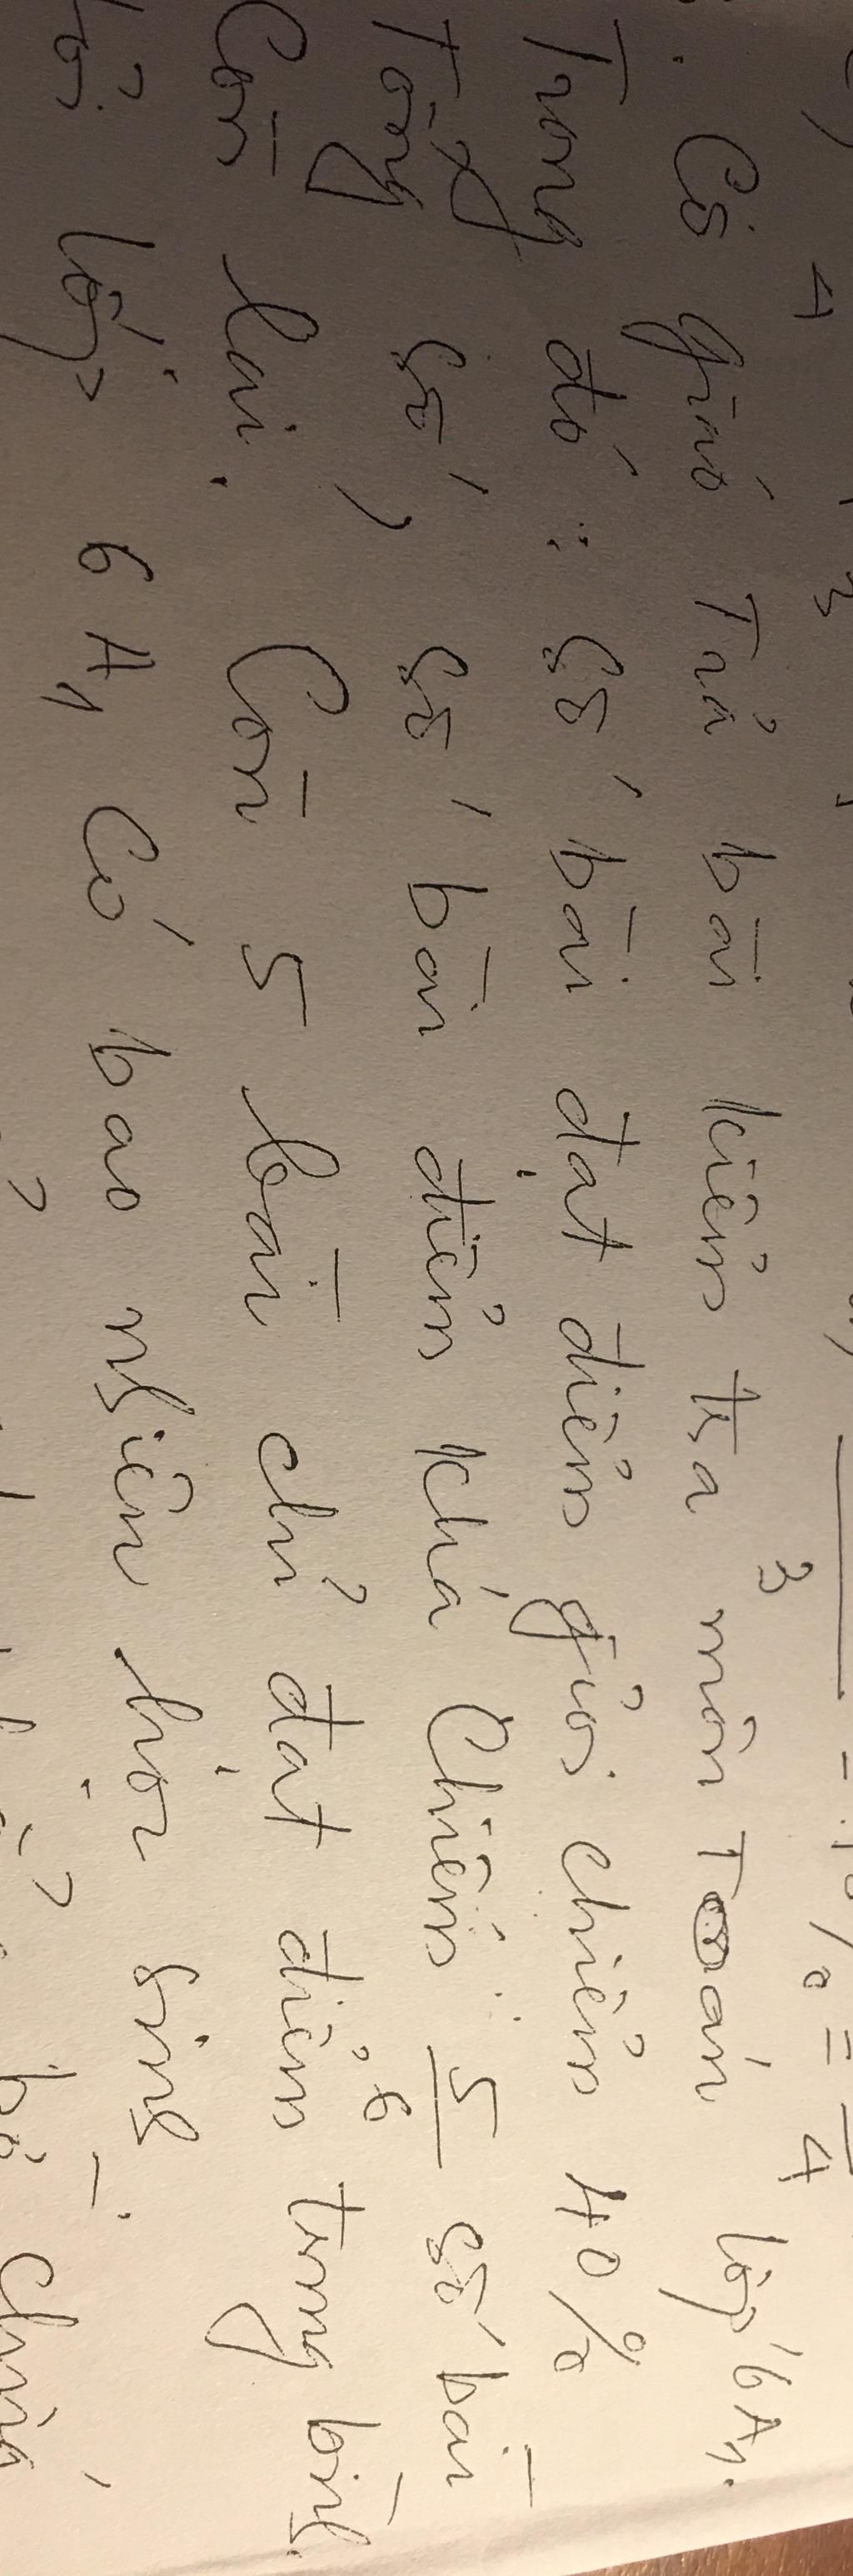 4 3
3 = 10% = 4
Cô giáo Trả bài kiểm tra môn Toán lớp 6A1.
Trong đó: số bài đạt điểm giỏi chiếm 40%
Tổng số, số bài điểm khá Chiếm: 5/6 số bài
Còn lại. Còn 5 bài chỉ đạt điểm trung bình.
Hỏi lớp 6A1 Có bao nhiêu học sinh.